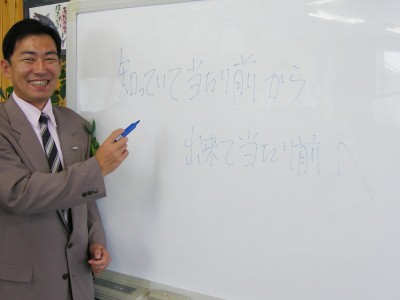 知っていて当たり前から
出来て当たり前へ